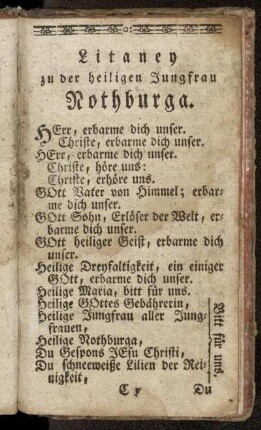 Litaney
zu der heiligen Jungfrau
Nothburga.
HErr, erbarme dich unser.
Christe, erbarme dich unser.
HErr, erbarme dich unser.
Christe, höre uns:
Christe, erhöre uns.
GOtt Vater von Himmel; erbar-
me dich unser.
GOtt Sohn, Erlöser der Welt, er-
barme dich unser.
GOtt heiliger Geist, erbarme dich
unser.
Heilige Dreyfaltigkeit, ein einiger
GOtt, erbarme dich unser.
Heilige Maria, bitt für uns.
Heilige GOttes Gebährerin,
Heilige Jungfrau aller Jung-
frauen,
Heilige Nothburga,
Du Gespons JEsu Christi,
Du schneeweiße Lilien der Rei-
nigkeit,
Bitt für uns.
Du